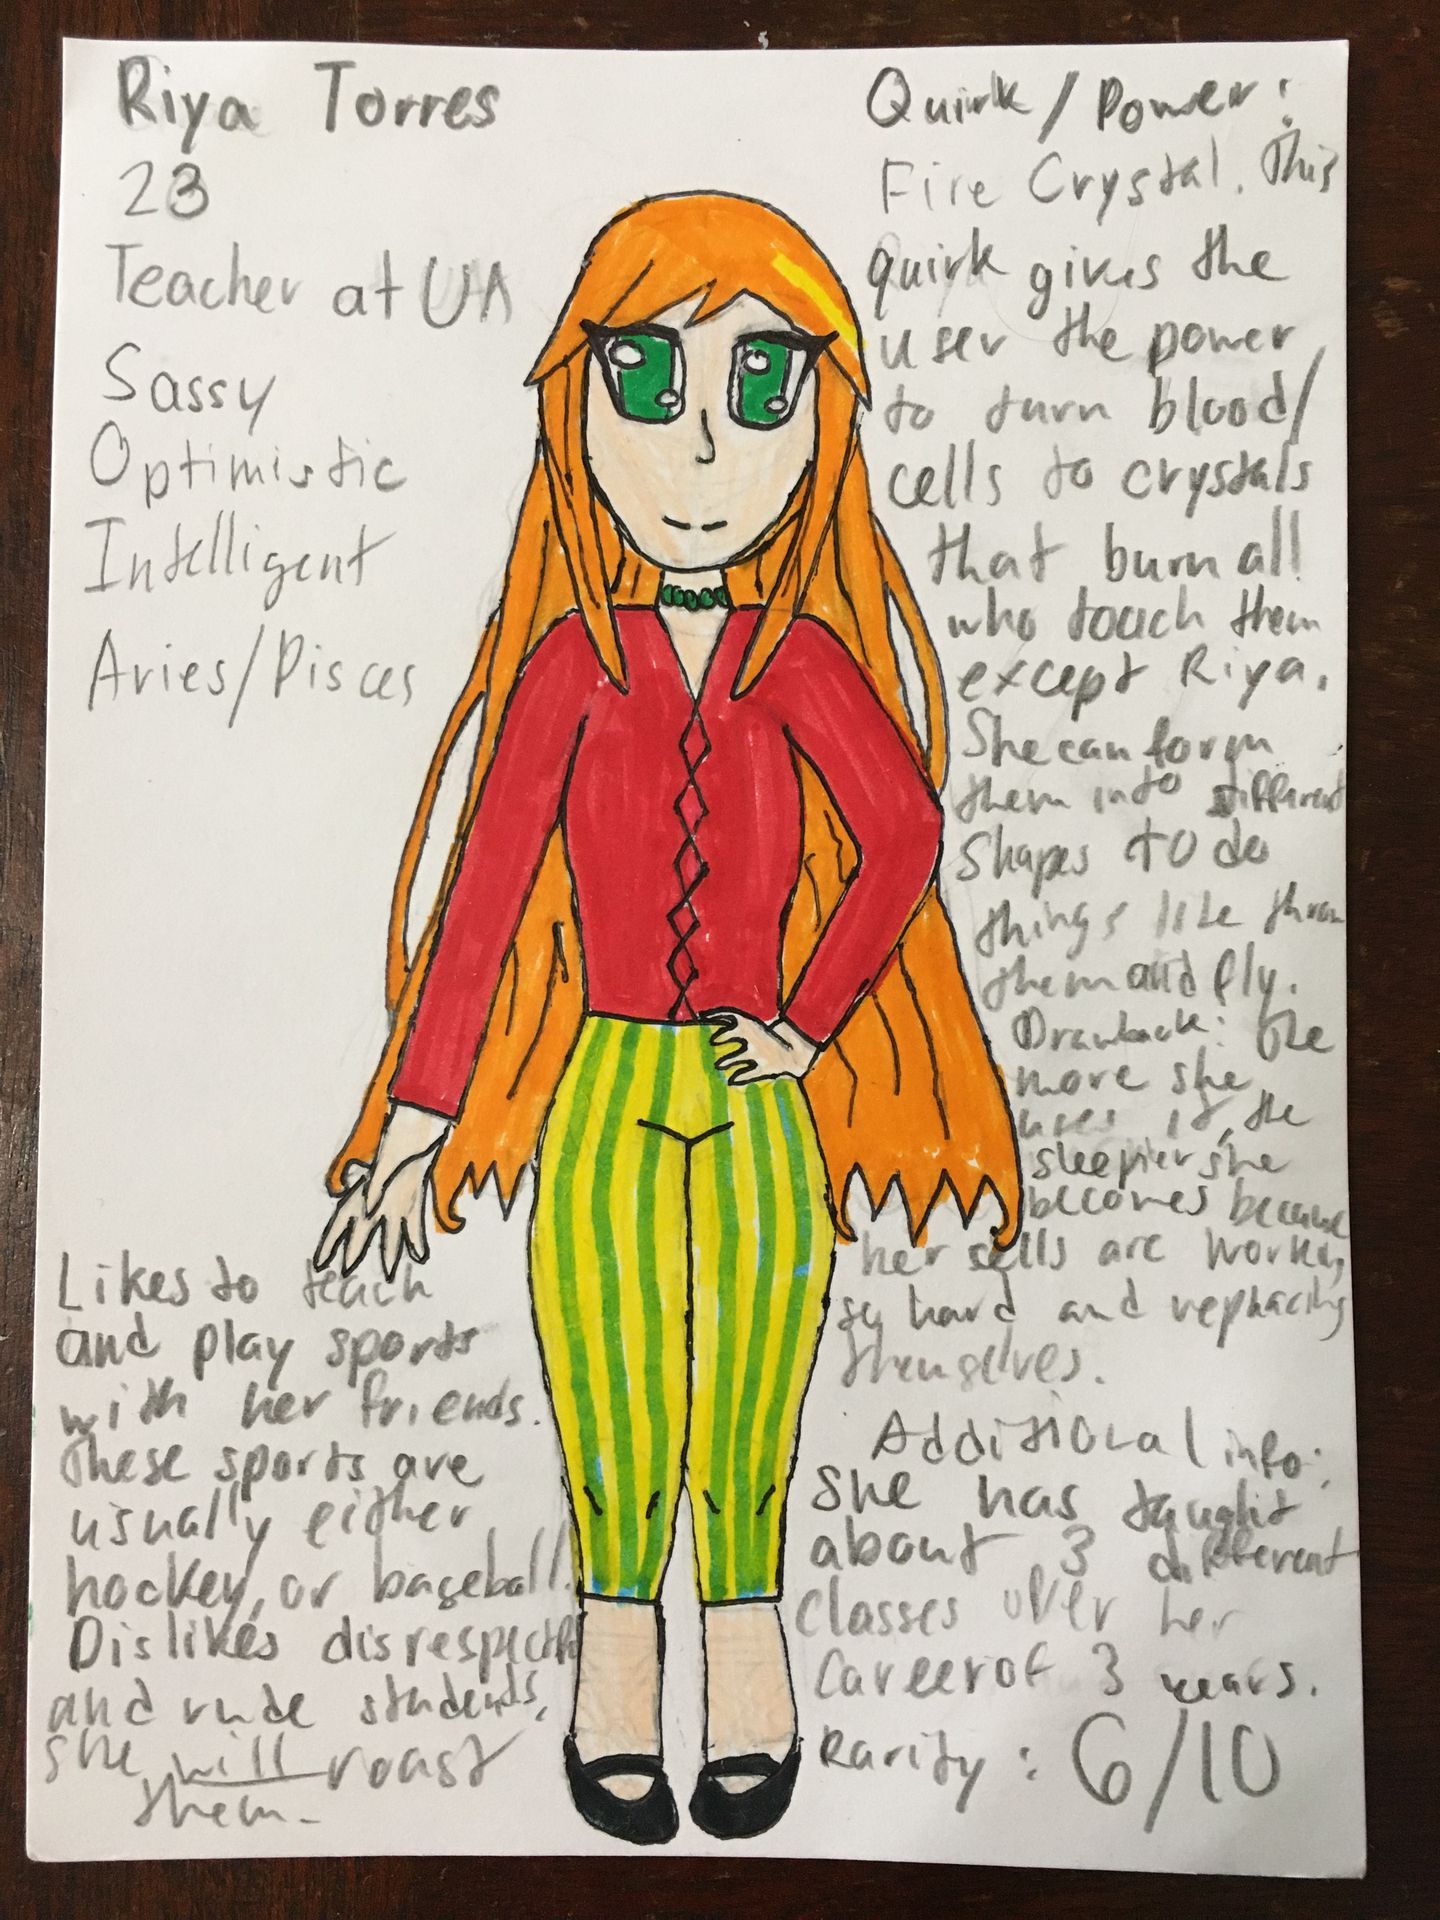 Riya Torres
23
Teacher at UA
Sassy
Optimistic
Intelligent
Aries/Pisces
Likes to teach
and play sports
with her friends.
These sports are
usually either
hockey, or baseball.
Dislikes disrespectful
and rude students,
she will roast
them.
Quirk/Power:
Fire Crystal. This
quirk gives the
user the power
to turn blood/
cells to crystals
that burn all
who touch them
except Riya.
She can form
them into different
shapes to do
things like throw
them and fly.
Drawback: The
more she
uses it, the
sleepier she
becomes because
her cells are working
so hard and replacing
themselves.
Additional info:
She has taught
about 3 different
classes over her
career of 3 years.
Rarity: 6/10